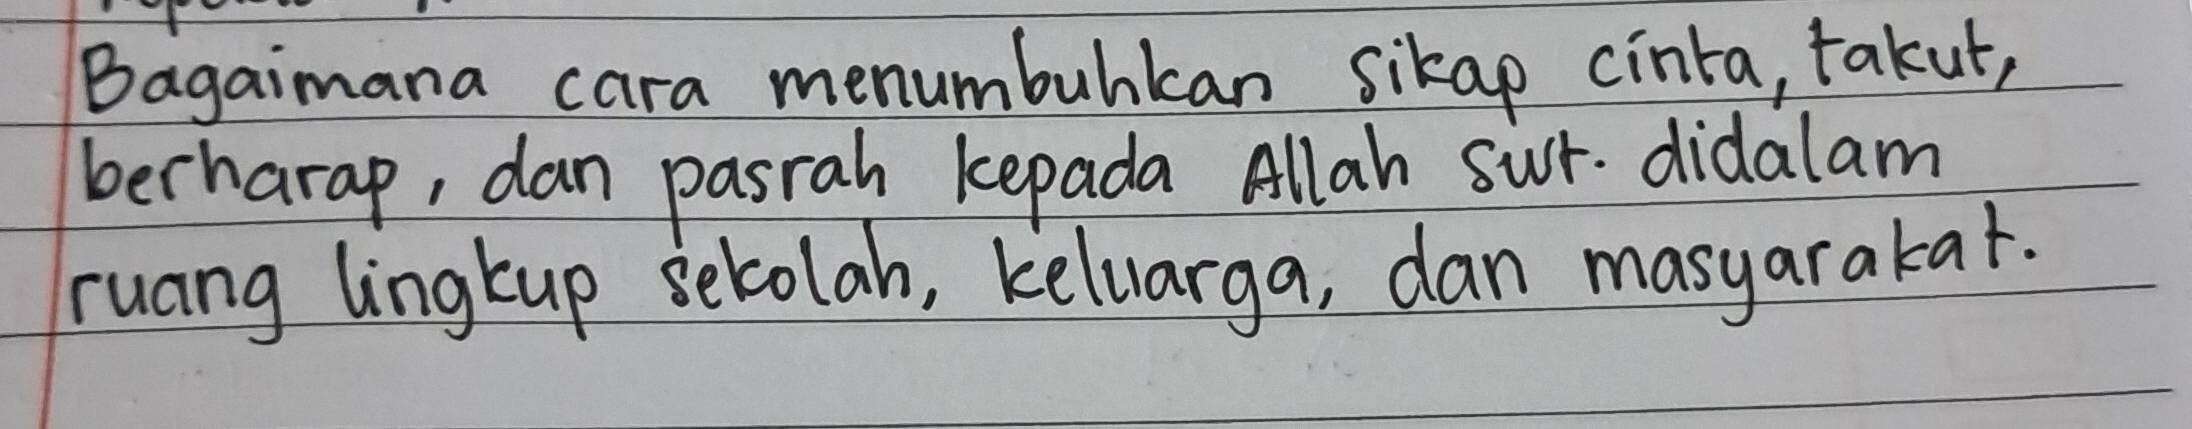 Bagaimana cara menumbuhkan sikap cinta, takut,
berharap, dan pasrah kepada Allah swt. didalam
ruang lingkup sekolah, keluarga, dan masyarakat.